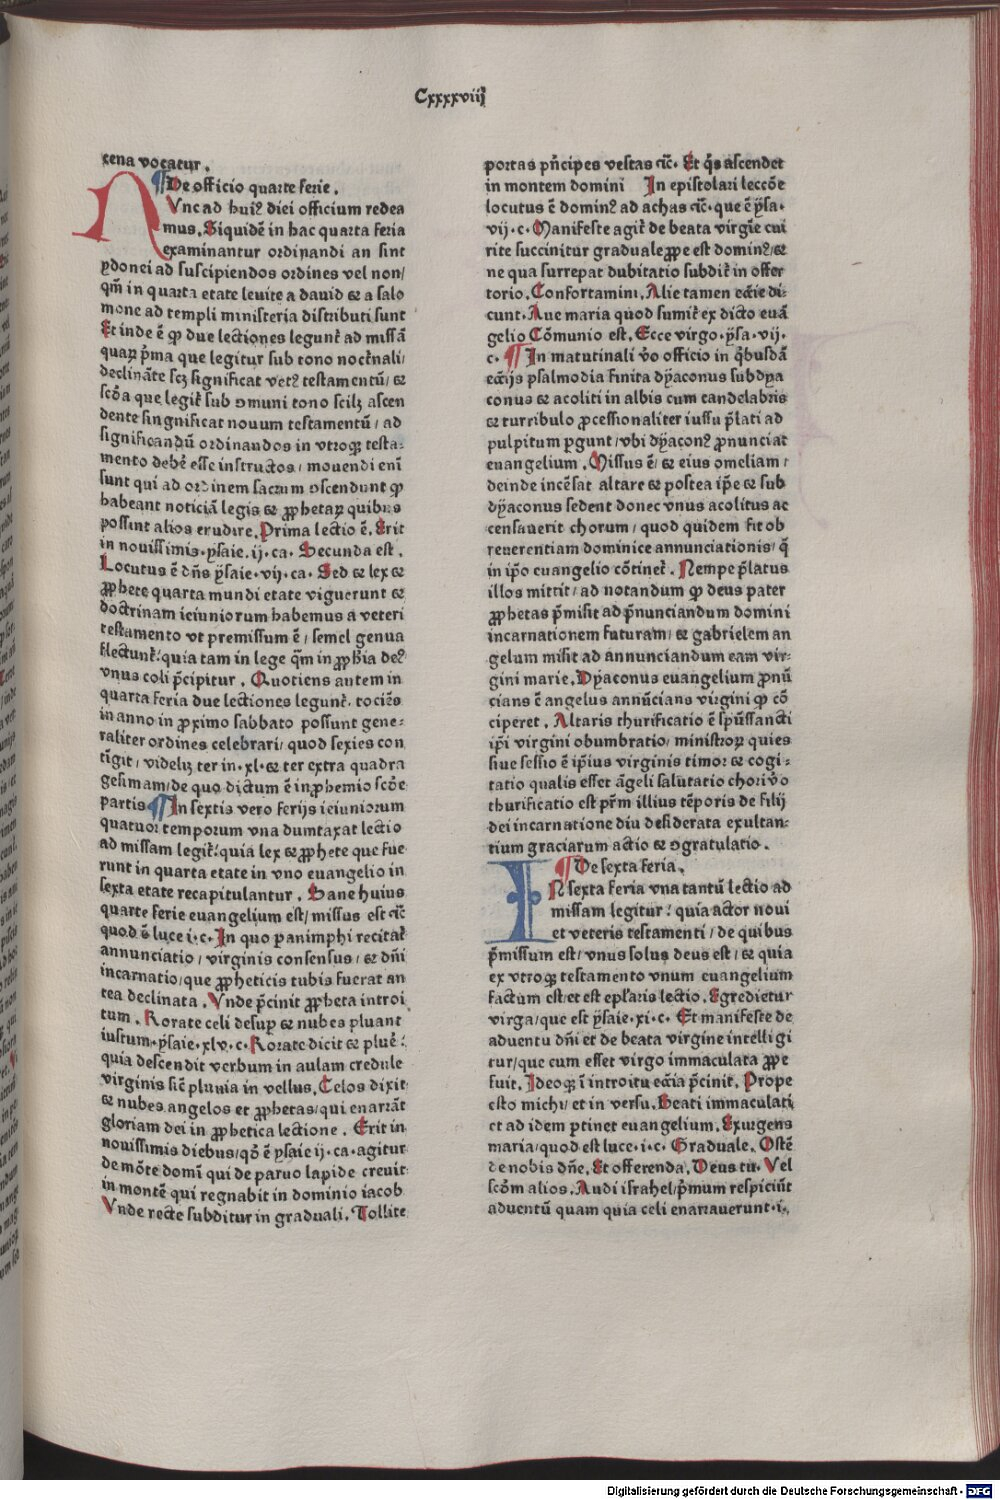 Cxxxxviiij
cena vocatur.
¶ De officio quarte ferie.
NVnc ad huiꝰ diei officium redea
mus. Siquidē in hac quarta feria
examinantur ordinandi an sint
ydonei ad suscipiendos ordines vel non/
qm̄ in quarta etate leuite a dauid ⁊ a salo
mone ad templi ministeria distributi sunt
Et inde ē ꝙ due lectiones legunt᷑ ad missā
quaꝝ p̄ma que legitur sub tono noct᷑nali/
declināte scꝫ significat vetꝰ testamentū/ ⁊
scōa que legit᷑ sub ꝯmuni tono scilꝫ ascen
dente singnificat nouum testamentū/ ad
significandū ordinandos in vtroqꝫ testa⸗
mento debē esse instructos/ mouendi eni
sunt qui ad ordinem sacrum ꝯscendunt ꝙ
habeant noticiā legis ⁊ ꝓphetaꝝ quibus
possint alios erudire. Prima lectio ē. Erit
in nouissimis. ysaie. ij. ca. Secunda est.
Locutus ē dn̄s ysaie. vij. ca. Sed ⁊ lex ⁊
ꝓphete quarta mundi etate viguerunt ⁊
doctrinam ieiuniorum habemus a veteri
testamento vt premissum ē/ semel genua
flectunt᷑: quia tam in lege qm̄ in ꝓphīa deꝰ
vnus coli p̄cipitur. Quotiens autem in
quarta feria due lectiones legunt᷑. tociēs
in anno in ꝓximo sabbato possunt gene⸗
raliter ordines celebrari/ quod sexies con
tīgit/ videlꝫ ter in. xl. ⁊ ter extra quadra
gesimam/ de quo dictum ē in ꝓhemio scōe
partis ¶ In sextis vero ferijs ieiuniorum
quatuor temporum vna dumtaxat lectio
ad missam legit᷑: quia lex ⁊ ꝓphete que fue
runt in quarta etate in vno euangelio in
sexta etate recapitulantur. Sane huius
quarte ferie euangelium est/ missus est ⁊c̄
quod ē luce i. c. In quo paranimphi recitat᷑
annunciatio/ virginis consensus/ ⁊ dn̄i
incarnatio/ que ꝓpheticis tubis fuerat an
tea declinata. Vnde p̄cinit ꝓpheta introi
tum. Rorate celi desuꝑ ⁊ nubes pluant
iustum. ysaie. xlv. c. Rorate dicit ⁊ pluē:
quia descendit verbum in aulam credule
virginis sic̄ pluuia in vellus. Celos dixit
⁊ nubes angelos et ꝓphetas/ qui enarrāt
gloriam dei in ꝓphetica lectione. Erit in
nouissimis diebus/ qd̄ ē ysaie ij. ca. agitur
de mōte domī qui de paruo lapide creuit
in montē qui regnabit in dominio iacob
Vnde recte subditur in graduali. Tollite
portas pn̄cipes vestas ⁊c̄. Et q̄s ascendet
in montem domini In epistolari leccōe
locutus ē dominꝰ ad achas ⁊c̄. que ē ysa.
vij. c. Manifeste agit᷑ de beata virgīe cui
rite succinitur graduale ꝓpe est dominꝰ/ ⁊
ne qua surrepat dubitatio subdit᷑ in offer
torio. Confortamini. Alie tamen ecc̄ie di⸗
cunt. Aue maria quod sumit᷑ ex dicto euā
gelio Cōmunio est. Ecce virgo. ysa. vij.
c. ¶ In matutinali v̄o officio in q̄busdā
ecc̄ijs psalmodia finita dyaconus subdya
conus ⁊ acoliti in albis cum candelabris
⁊ turribulo ꝓcessionaliter iussu p̄lati ad
pulpitum ꝑgunt/ vbi dyaconꝰ ꝓnunciat
euangelium. Missus ē/ ⁊ eius omeliam/
deinde incēsat altare ⁊ postea ip̄e ⁊ sub
dyaconus sedent donec vnus acolitus ac
censauerit chorum/ quod quidem fit ob
reuerentiam dominice annunciationis/ q̄
in ip̄o euangelio cōtinet᷑. Nempe p̄latus
illos mittit/ ad notandum ꝙ deus pater
ꝓphetas p̄misit ad p̄nunciandum domini
incarnationem futuram/ ⁊ gabrielem an
gelum misit ad annunciandum eam vir⸗
gini marie. Dyaconus euangelium ꝓnū
cians ē angelus annūcians virgini ꝙ cō
ciperet. Altaris thurificatio ē spūssancti
ip̄i virgini obumbratio/ ministroꝝ quies
siue sessio ē ip̄ius virginis timor ⁊ cogi⸗
tatio qualis esset āgeli salutatio chori v̄o
thurificatio est pr̄m illius tēporis de filij
dei incarnatione diu desiderata exultan⸗
tium graciarum actio ⁊ ꝯgratulatio.
¶ De sexta feria.
IN sexta feria vna tantū lectio ad
missam legitur: quia actor noui
et veteris testamenti/ de quibus
p̄missum est/ vnus solus deus est/ ⁊ quia
ex vtroqꝫ testamento vnum euangelium
factum est/ et est epl̄aris lectio. Egredietur
virga/ que est ysaie. xi. c. Et manifeste de
aduentu dn̄i et de beata virgine intelligi
tur/ que cum esset virgo immaculata ꝓpe
fuit. Ideoqꝫ ī introitu ecc̄ia p̄cinit. Prope
esto michi/ et in versu. Beati immaculati
et ad idem ꝑtinet euangelium. Exurgens
maria/ quod est luce. i. c. Graduale. Ostē
de nobis dn̄e. Et offerenda. Deus tu. Vel
scōm alios. Audi israhel/ p̄mum respiciūt
aduentū quam quia celi enarrauerunt. i.
Digitalisierung gefördert durch die Deutsche Forschungsgemeinschaft - DFG